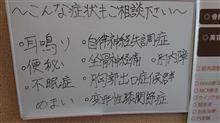 ～こんな症状もご相談下さい～
・耳鳴り ・自律神経失調症
・便秘 ・坐骨神経痛 ・肘内障
・不眠症 ・胸郭出口症候群
・めまい ・変形性膝関節症